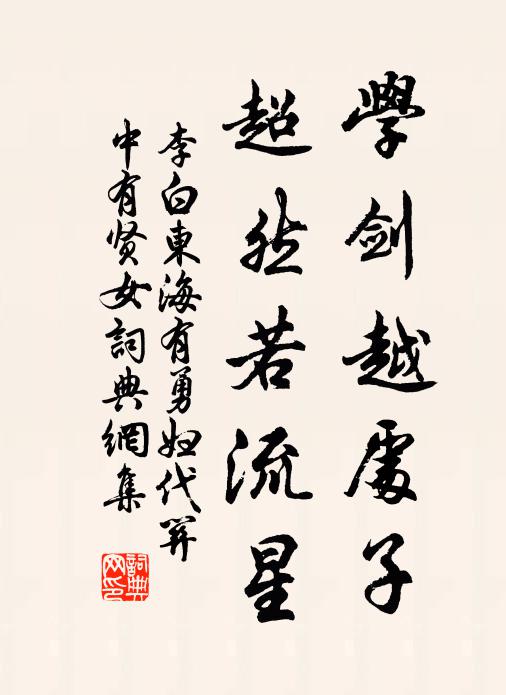 學劍越處子
超然若流星
李白東海有勇妇代關
中有贤女詞典網集
詞典
网印